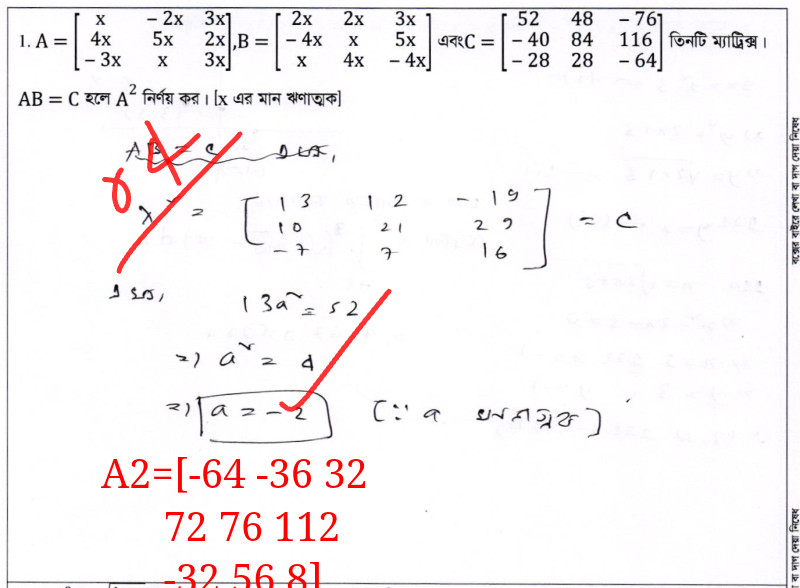 1. A = [x −2x 3x
4x 5x 2x
−3x x 3x], B = [2x 2x 3x
−4x x 5x
x 4x −4x] এবং C = [52 48 −76
−40 84 116
−28 28 −64] তিনটি ম্যাট্রিক্স।
AB = C হলে A² নির্ণয় কর। [x এর মান ঋণাত্মক]
AB = C
x² = [13 12 −19
10 21 29
−7 7 16] = C
13a² = 52
=) a² = 4
=) a = −2 (∵ a ঋণাত্মক)
A2=[-64 -36 32
72 76 112
-32 56 8]
বক্সের বাইরে লেখা বা দাগ দেয়া নিষেধ